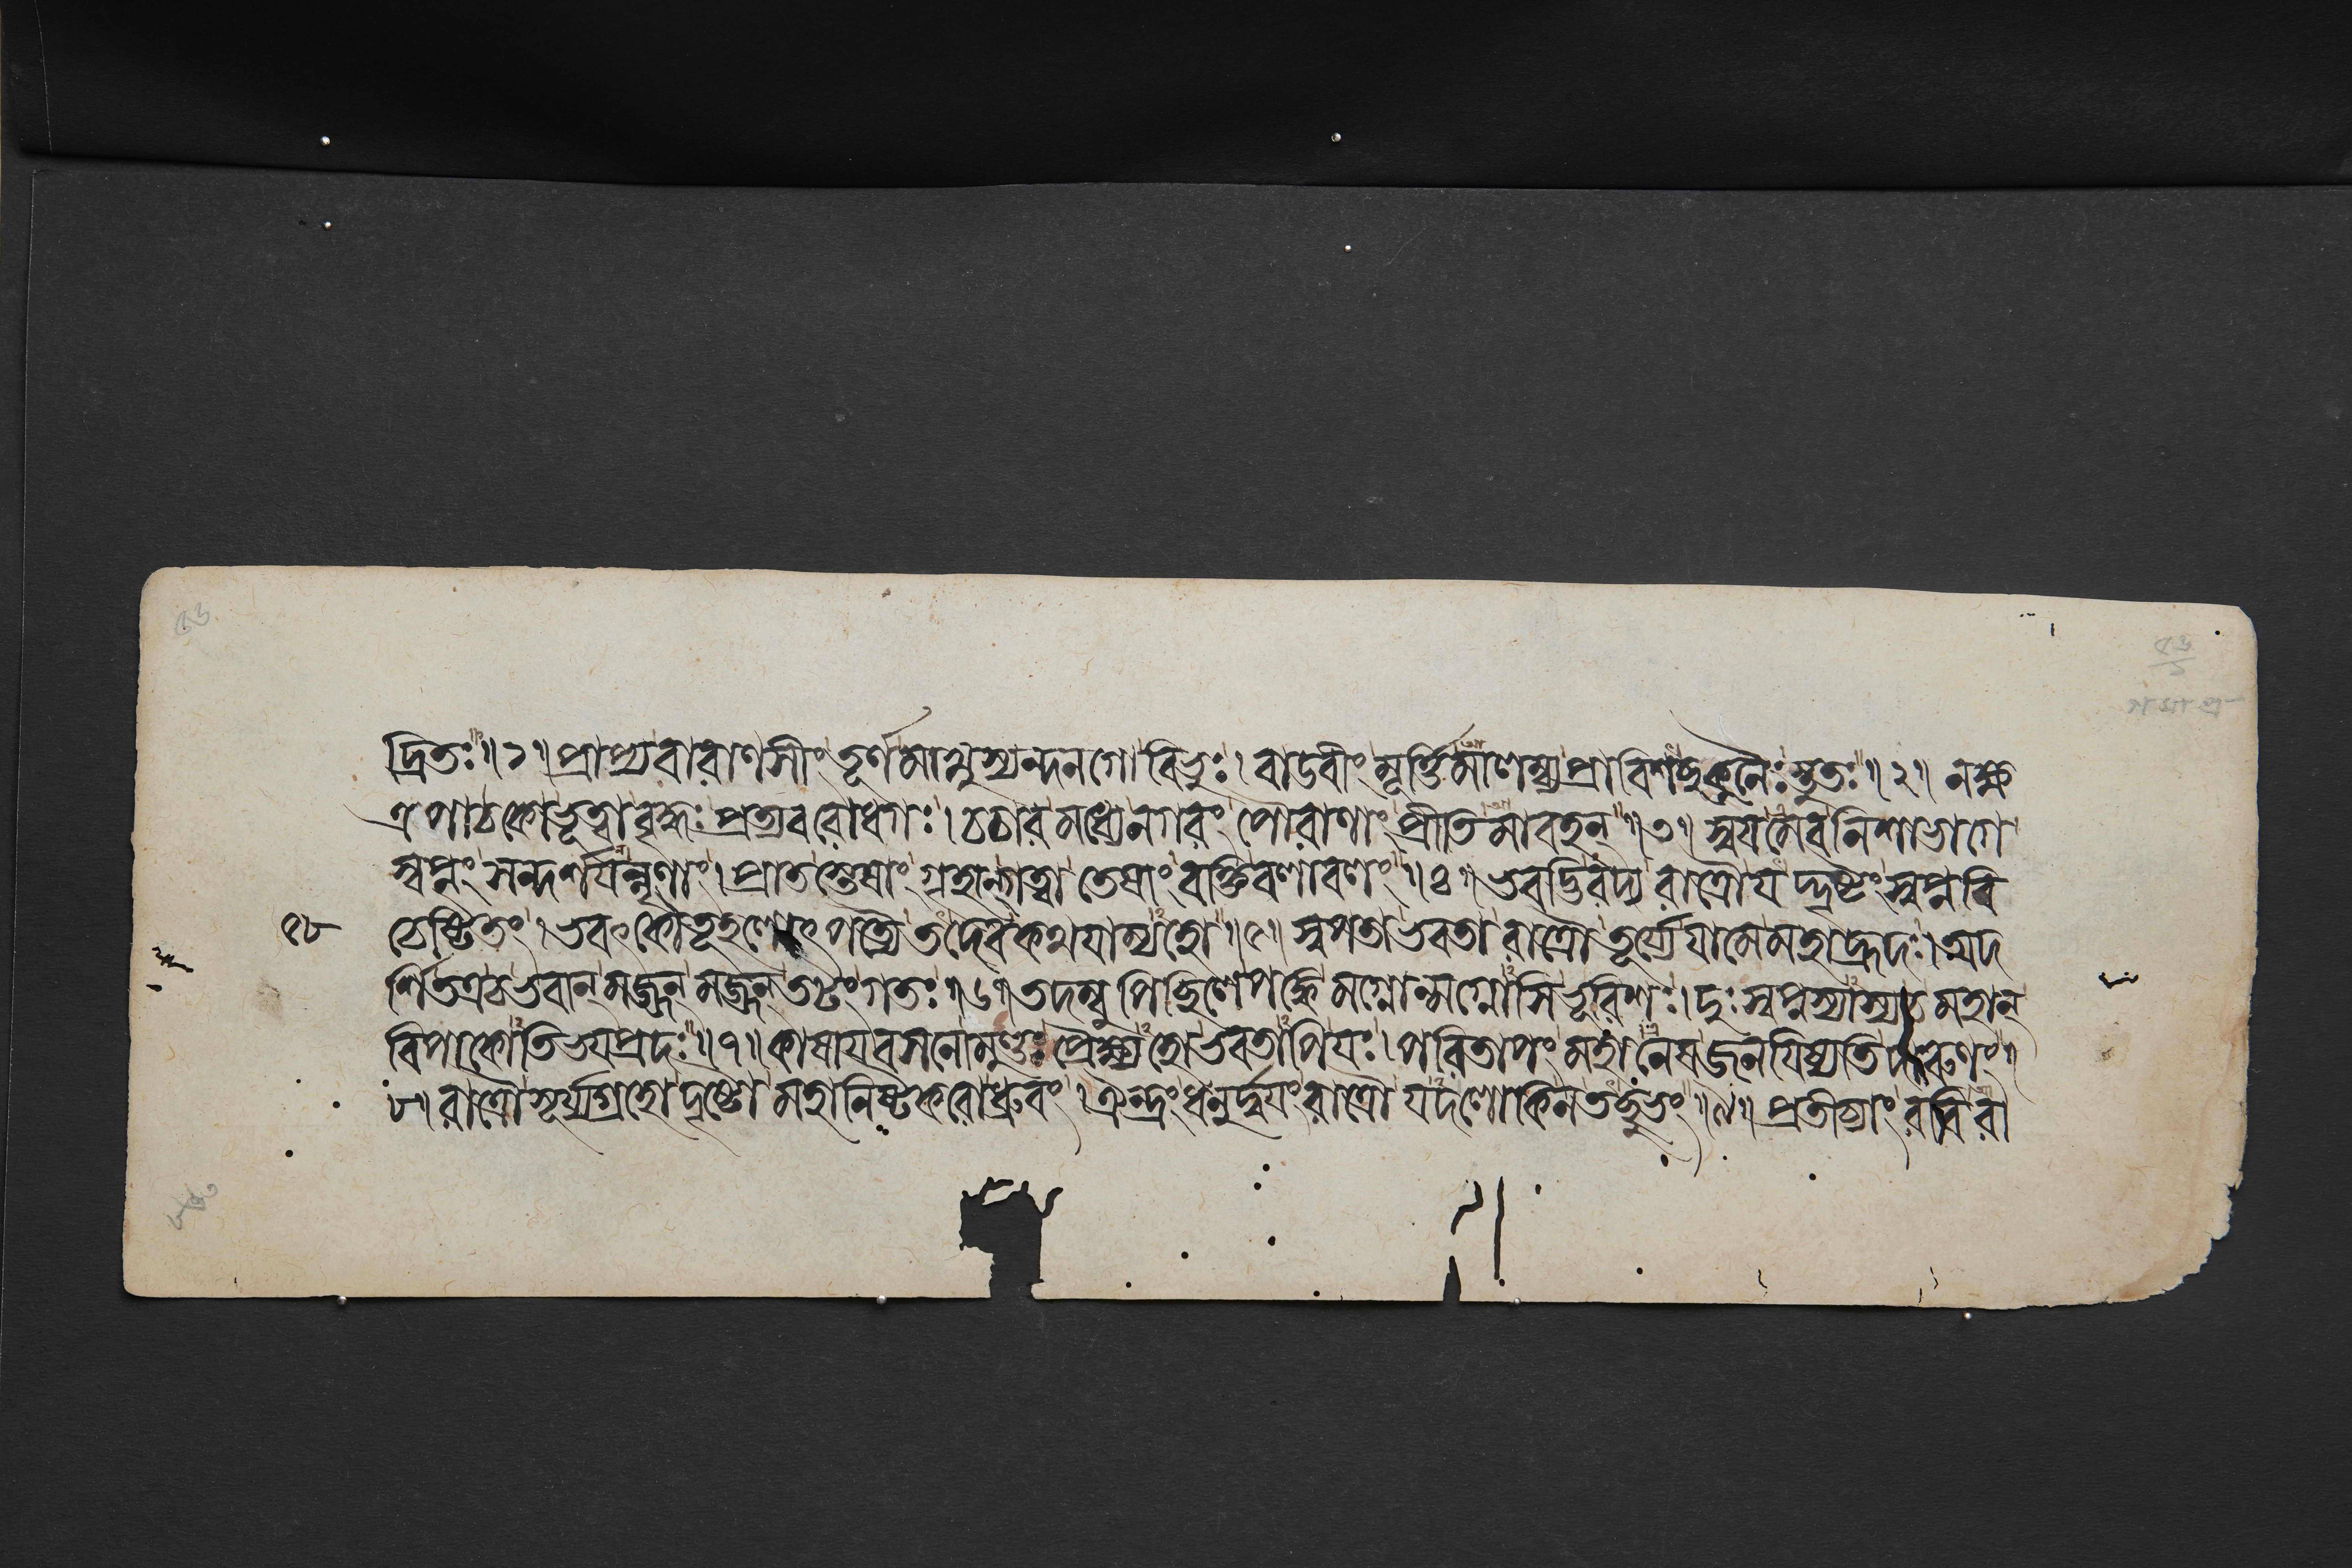 দ্রিতঃ॥১॥প্রাপ্যবারাণসীং তূর্ণমাশুস্যন্দনগো বিভুঃ। বাডবীং মূর্ত্তিমালম্ব্যপ্রাবিশচ্ছকুনৈঃ স্তুতঃ॥২॥ নক্ষ
ত্রপাঠকোভূত্বাবৃদ্ধঃ প্রত্যবরোধগঃ। চচারমধ্যেনগরং পৌরাণাং প্রীতিমাবহন্॥৩॥ স্বয়মেবনিশাভাগে
স্বপ্নং সন্দর্শয়ন্নৃণাং। প্রাতস্তেষাং গৃহান্গত্বা তেষাং বক্তিবলাবলং॥৪॥ ভবদ্ভিরদ্য রাত্রৌযদ্দৃষ্টং স্বপ্নবি
চেষ্টিতং। ভবৎকৌতূহলোৎপত্ত্যৈতদেবকথযাম্যহো॥৫॥ স্বপতাভবতা রাত্রৌ তূর্য্যেযামেমহাহ্রদঃ। অদ
র্শিতত্রচভবান্মজ্জন্মজ্জন্তটংগতঃ॥৬॥ তদম্বুপিচ্ছিলেপঙ্কেমগ্নোন্মগ্নোসিভূরিশঃ। দুঃস্বপ্নস্যাস্যচমহান্
বিপাকোতিভয়প্রদঃ॥৭॥ কাষায়বসনোমুণ্ডঃ প্রৈক্ষ্যহোভবতাপিযঃ। পরিতাপং মহানেষজনয়িষ্যতিদারুণং॥
৮॥ রাত্রৌসূর্য্যগ্রহোদৃষ্টো মহানিষ্টকরোধ্রুবং। ঐন্দ্রং ধনুর্দ্বয়ংরাত্রৌ যদলোকিনতচ্ছুভং॥৯॥ প্রতীচ্যাং রবিরা